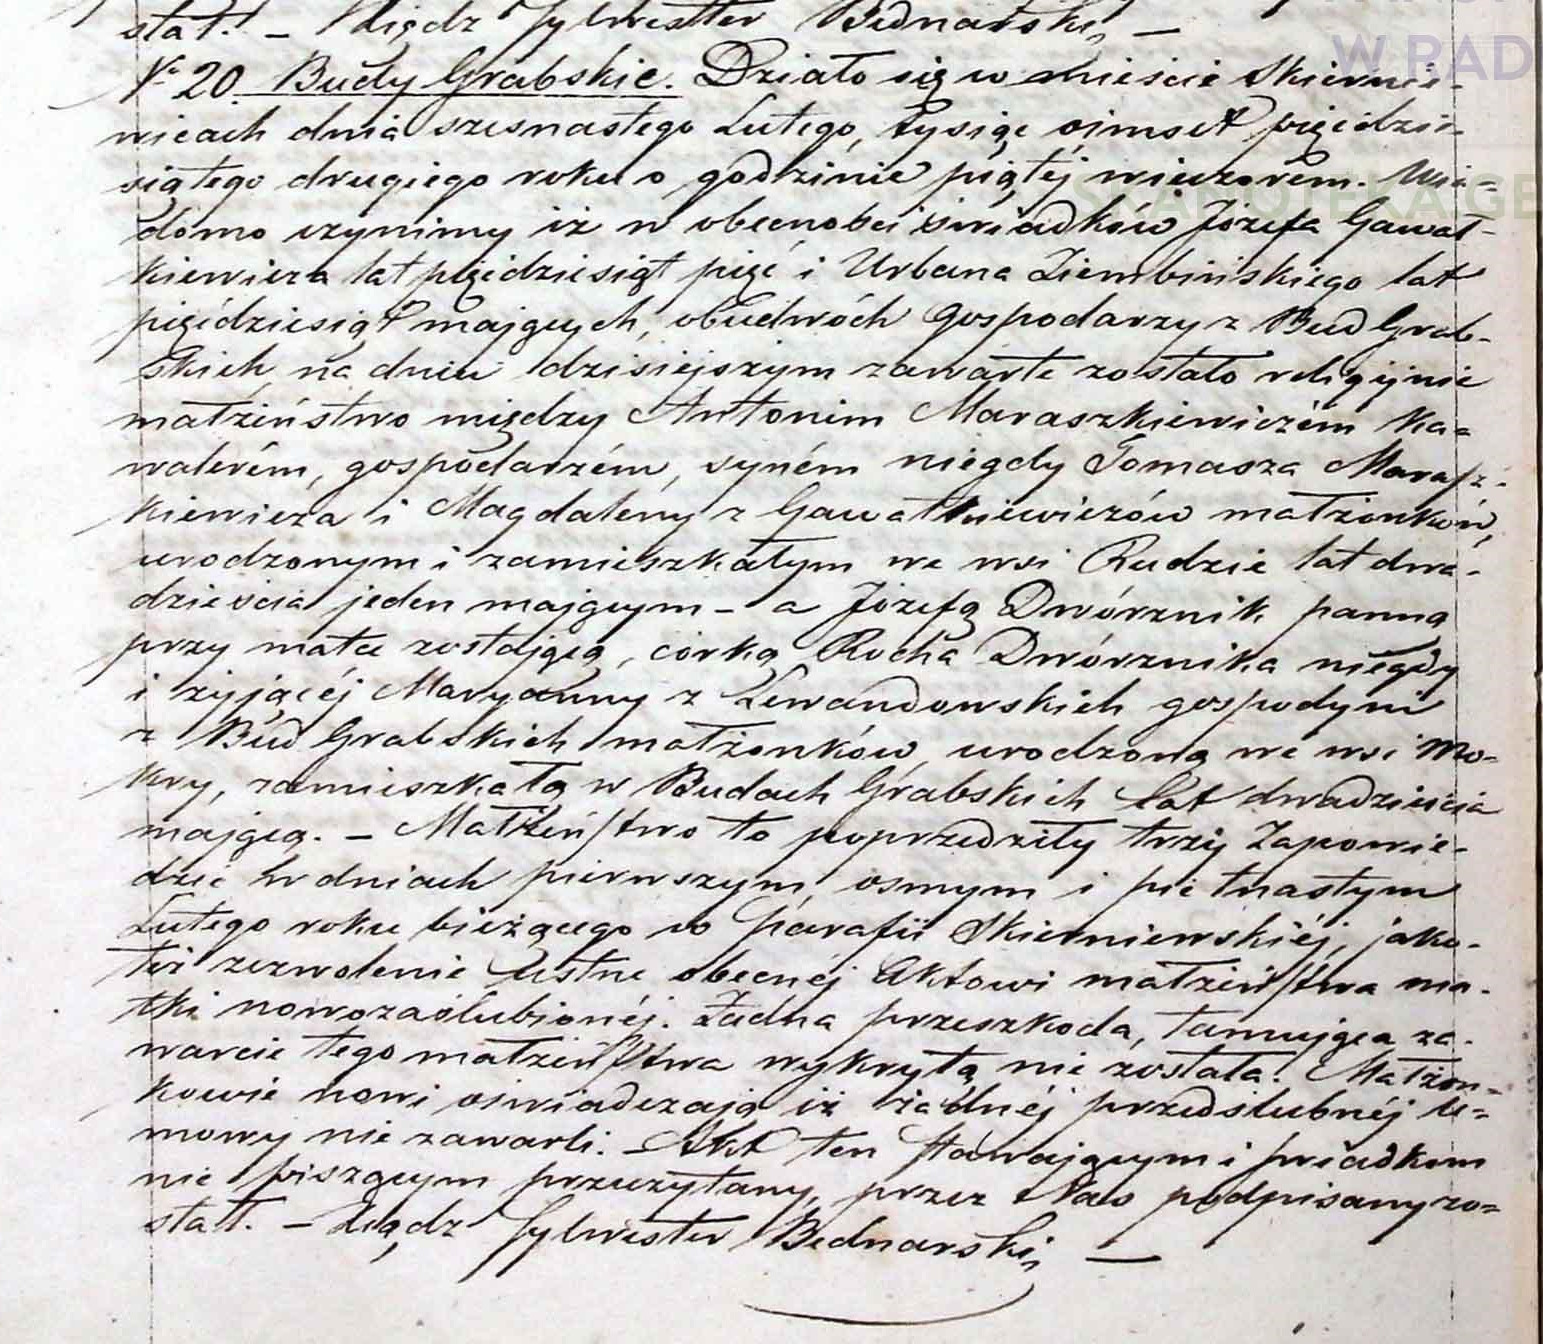 stał. – Xiądz Sylwester Bednarski –
W RAD
SKANOTEKA GE
N° 20. Budy Grabskie. Działo się w mieście Skiernie-
wicach dnia szesnastego Lutego, tysiąc ośmset pięćdzie-
siątego drugiego roku o godzinie piątéj wieczorem. Wia-
domo czynimy iż w obecności świadków Józefa Gawał-
kiewicza lat pięćdziesiąt pięć i Urbana Ziembińskiego lat
pięćdziesiąt mających, obudwóch gospodarzy z Bud Grab-
skich, na dniu dzisiejszym zawarte zostało religijnie
małżeństwo między Antonim Maraszkiewiczém ka-
walerém, gospodarzém, syném niegdy Tomasza Marasz-
kiewicza i Magdaleny z Gawałkiewiczów małżonków,
urodzonym i zamieszkałym we wsi Rudzie lat dwa-
dzieścia jeden mającym – a Józefą Dwórznik panną
przy matce zostającą, córką Rocha Dwórznika niegdy
i żyjącéj Maryanny z Lewandowskich gospodyni
z Bud Grabskich małżonków, urodzoną we wsi Mo-
kry, zamieszkałą w Budach Grabskich lat dwadzieścia
mającą. – Małżeństwo to poprzedziły trzy Zapowie-
dzie w dniach pierwszym, osmym i pietnastym
Lutego roku bieżącego w Parafii Skierniewskiéj, jako-
też zezwolenie ustne obecnéj Aktowi małżeństwa ma-
tki nowozaślubionéj. Żadna przeszkoda, tamująca za-
warcie tego małżeństwa wykrytą nie została. Małżon-
kowie nowi oświadczają iż żadnéj przedślubnéj u-
mowy nie zawarli. – Akt ten stawającym i świadkom
nie piszącym przeczytany, przez Nas podpisany zo-
stał. – Xiądz Sylwester Bednarski –